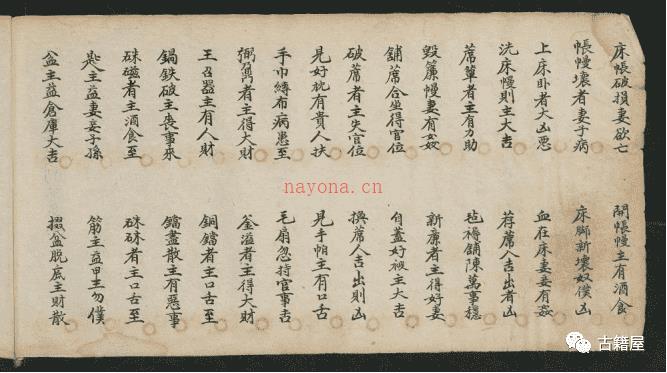 床帳破損妻欲亡 開帳幔主有酒食
帳幔壞者妻子病 床腳新壞奴僕凶
上床卧者大凶惡 血在床妻妾有姦
洗床幔則主大吉 荐蓆人吉出者凶
蓆簟者主有力助 毡褥舖陳萬事穩
毀簾幔妻有奴 新簾者主得好妻
舖蓆合坐得官位 自蓋好被主大吉
破蓆者主失官位 撰蓆人吉出則凶
見好枕有貴人扶 見手帕主有口舌
手巾縛布病患至 毛扇忽持官事吉
者主得大財 釜溢者主得大財
王召器主有人財 銅鐺者主口舌至
鍋鉄破主喪事來 鐺盡散主有惡事
者主酒食至 者主口舌至
匙主益妻妾子孫 筋主益甲主勿僕
盆主益倉庫大吉 掇盆脫底主財散
nayona.cn
古籍屋